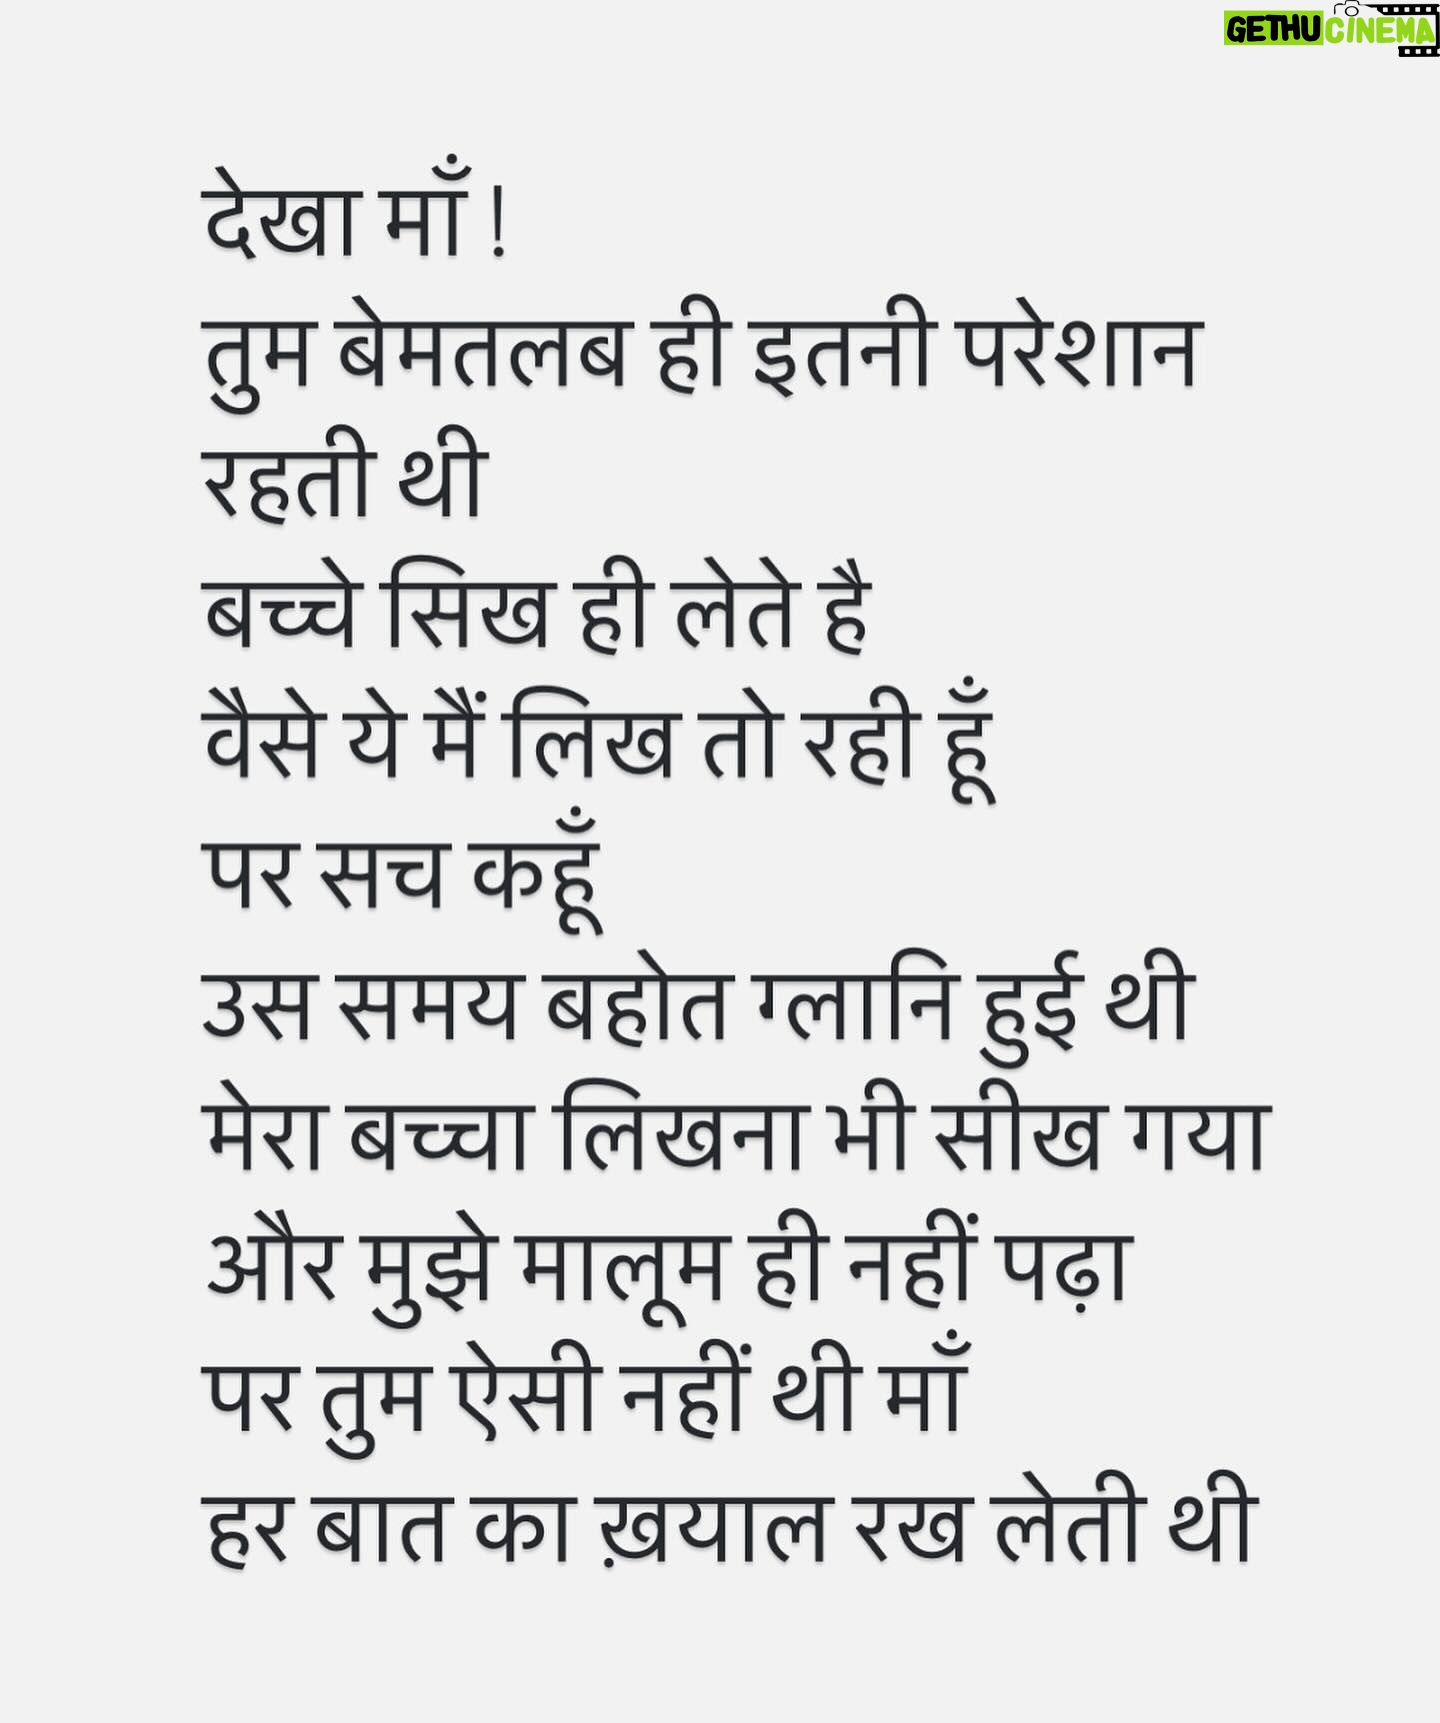 GETHU CINEMA
देखा माँ !
तुम बेमतलब ही इतनी परेशान
रहती थी
बच्चे सिख ही लेते है
वैसे ये मैं लिख तो रही हूँ
पर सच कहूँ
उस समय बहोत ग्लानि हुई थी
मेरा बच्चा लिखना भी सीख गया
और मुझे मालूम ही नहीं पढ़ा
पर तुम ऐसी नहीं थी माँ
हर बात का ख़याल रख लेती थी